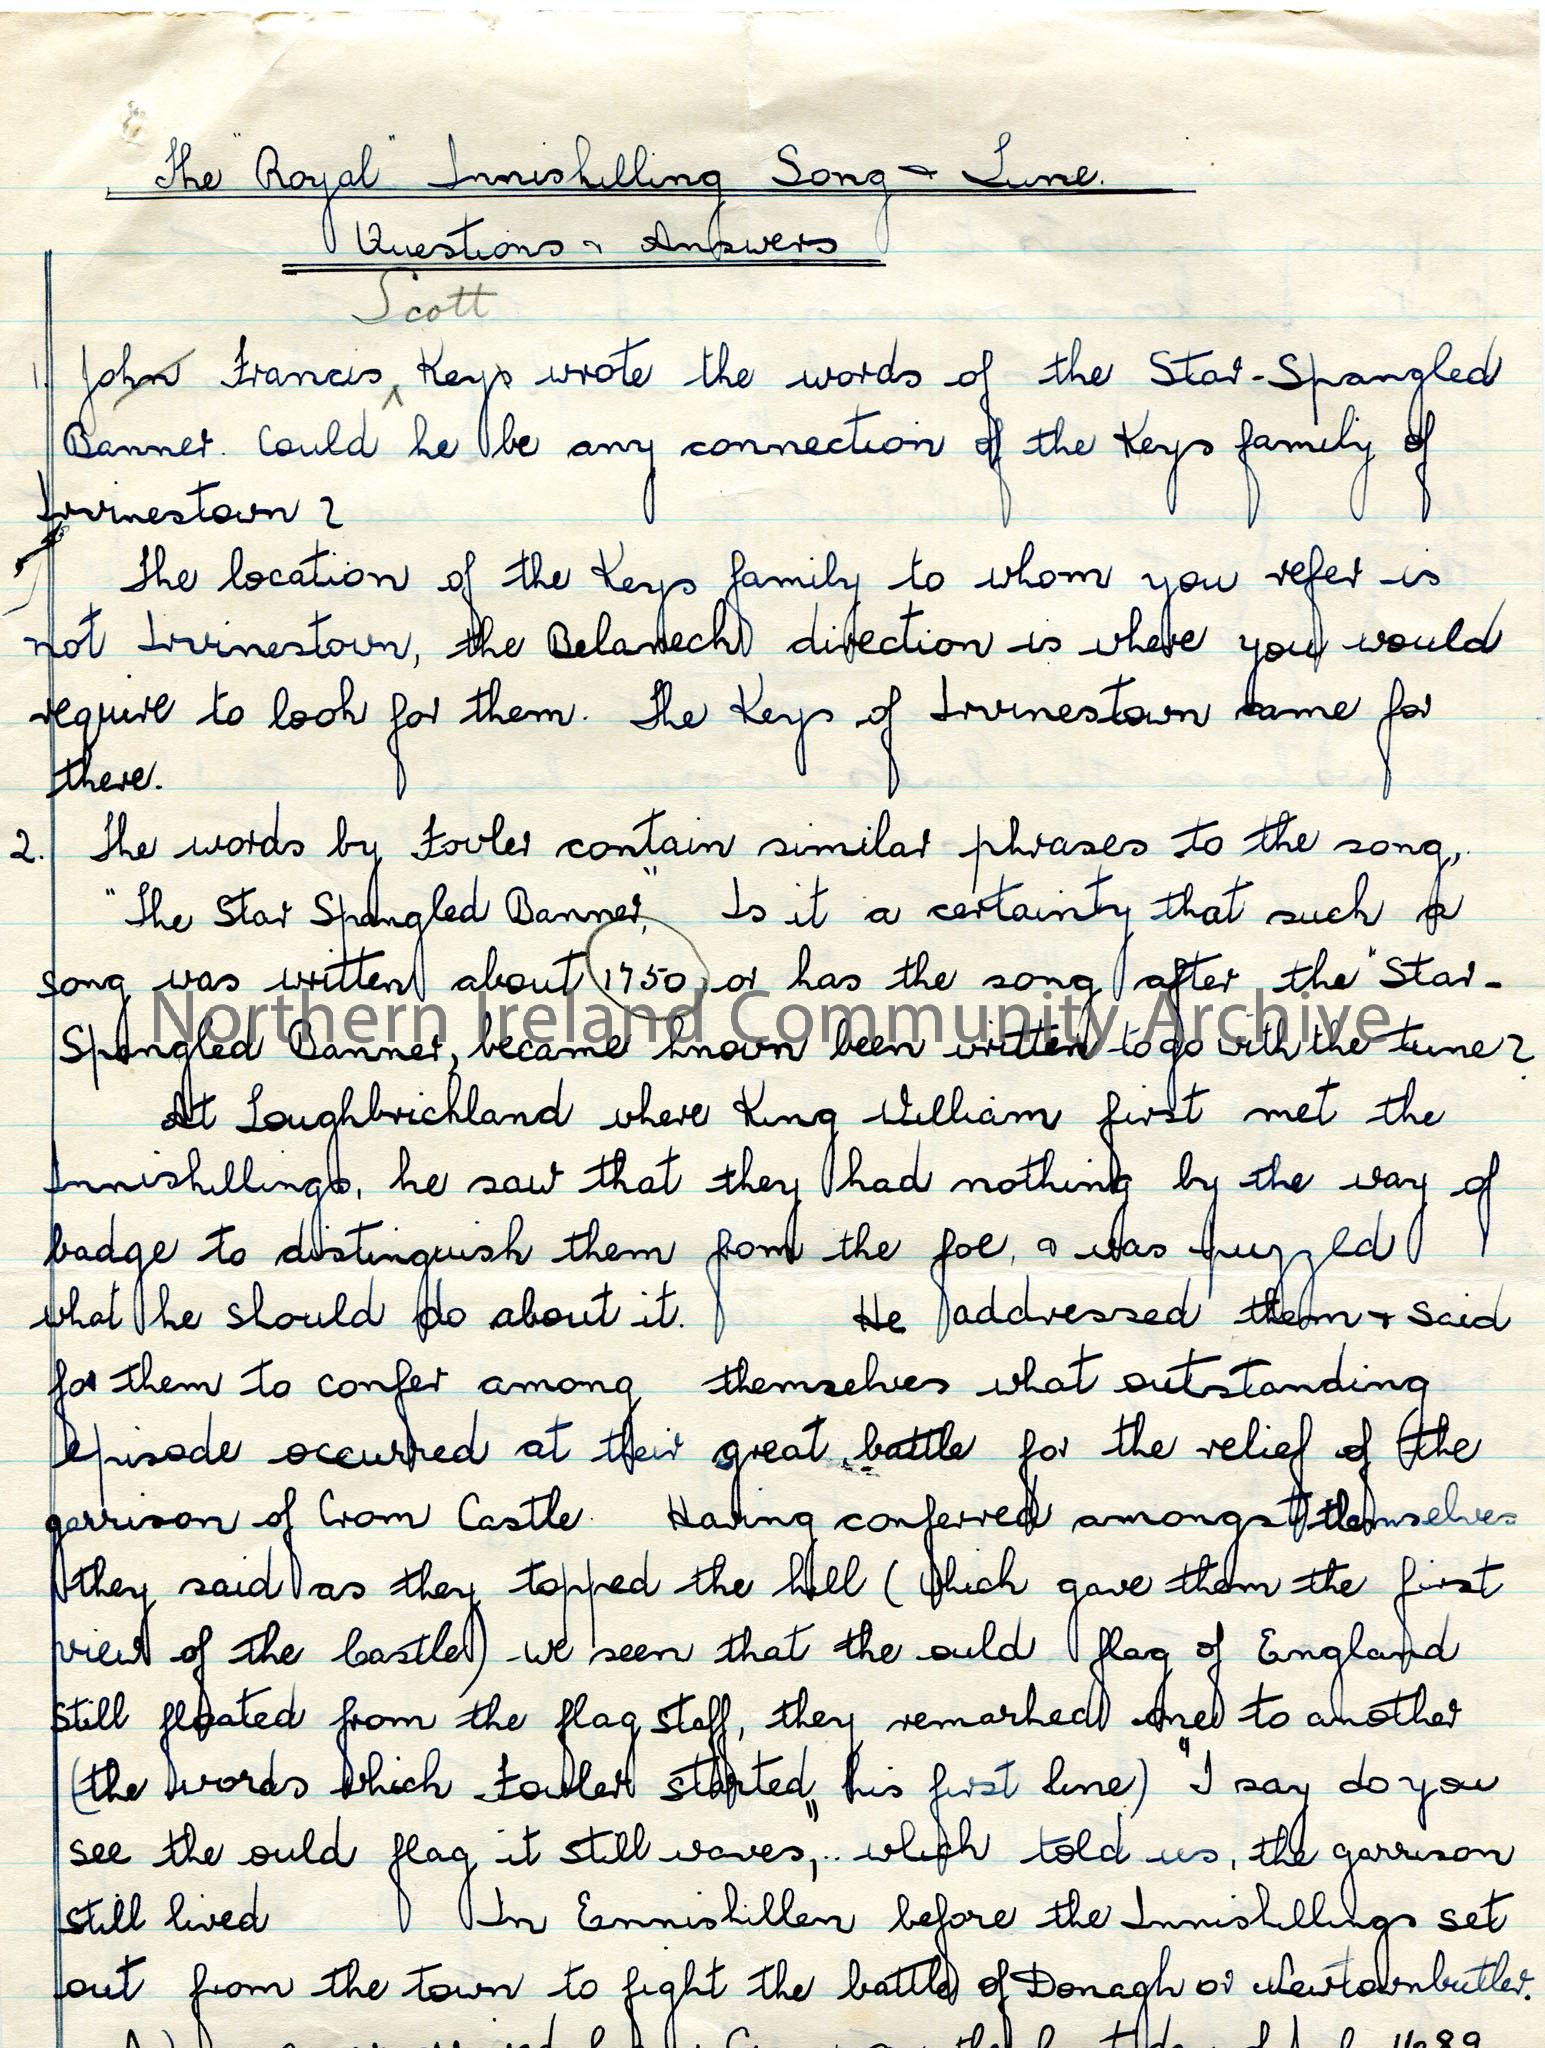 The "Royal" Inniskilling Song & Tune.
Questions & Answers
Scott
1. John Francis ^ Keys wrote the words of the Star-Spangled
Banner. Could he be any connection of the Keys family of
Irvinestown?
The location of the Keys family to whom you refer is
not Irvinestown, the direction is where you would
require to look for them. The Keys of Irvinestown came for
there.
2. The words by Fowler contain similar phrases to the song,
"The Star Spangled Banner". Is it a certainty that such a
song was written about 1750, or has the song after the "Star-
Northern Ireland Community Archive
Spangled Banner, became known been written to go with the tune?
At Loughbrickland where King William first met the
Inniskillings, he saw that they had nothing by the way of
badge to distinguish them from the foe, & was puzzled
what he should do about it. He addressed them & said
for them to confer among themselves what outstanding
episode occurred at their great battle for the relief of the
garrison of Crom Castle. Having conferred amongst themselves
they said as they topped the hill (which gave them the first
view of the Castle) we seen that the ould flag of England
still floated from the flag staff, they remarked one to another
(the words which Fowler started his first line) "I say do you
see the ould flag it still waves," which told us, the garrison
still lived In Enniskillen before the Inniskillings set
out from the town to fight the battle of Donagh or Newtownbutler.